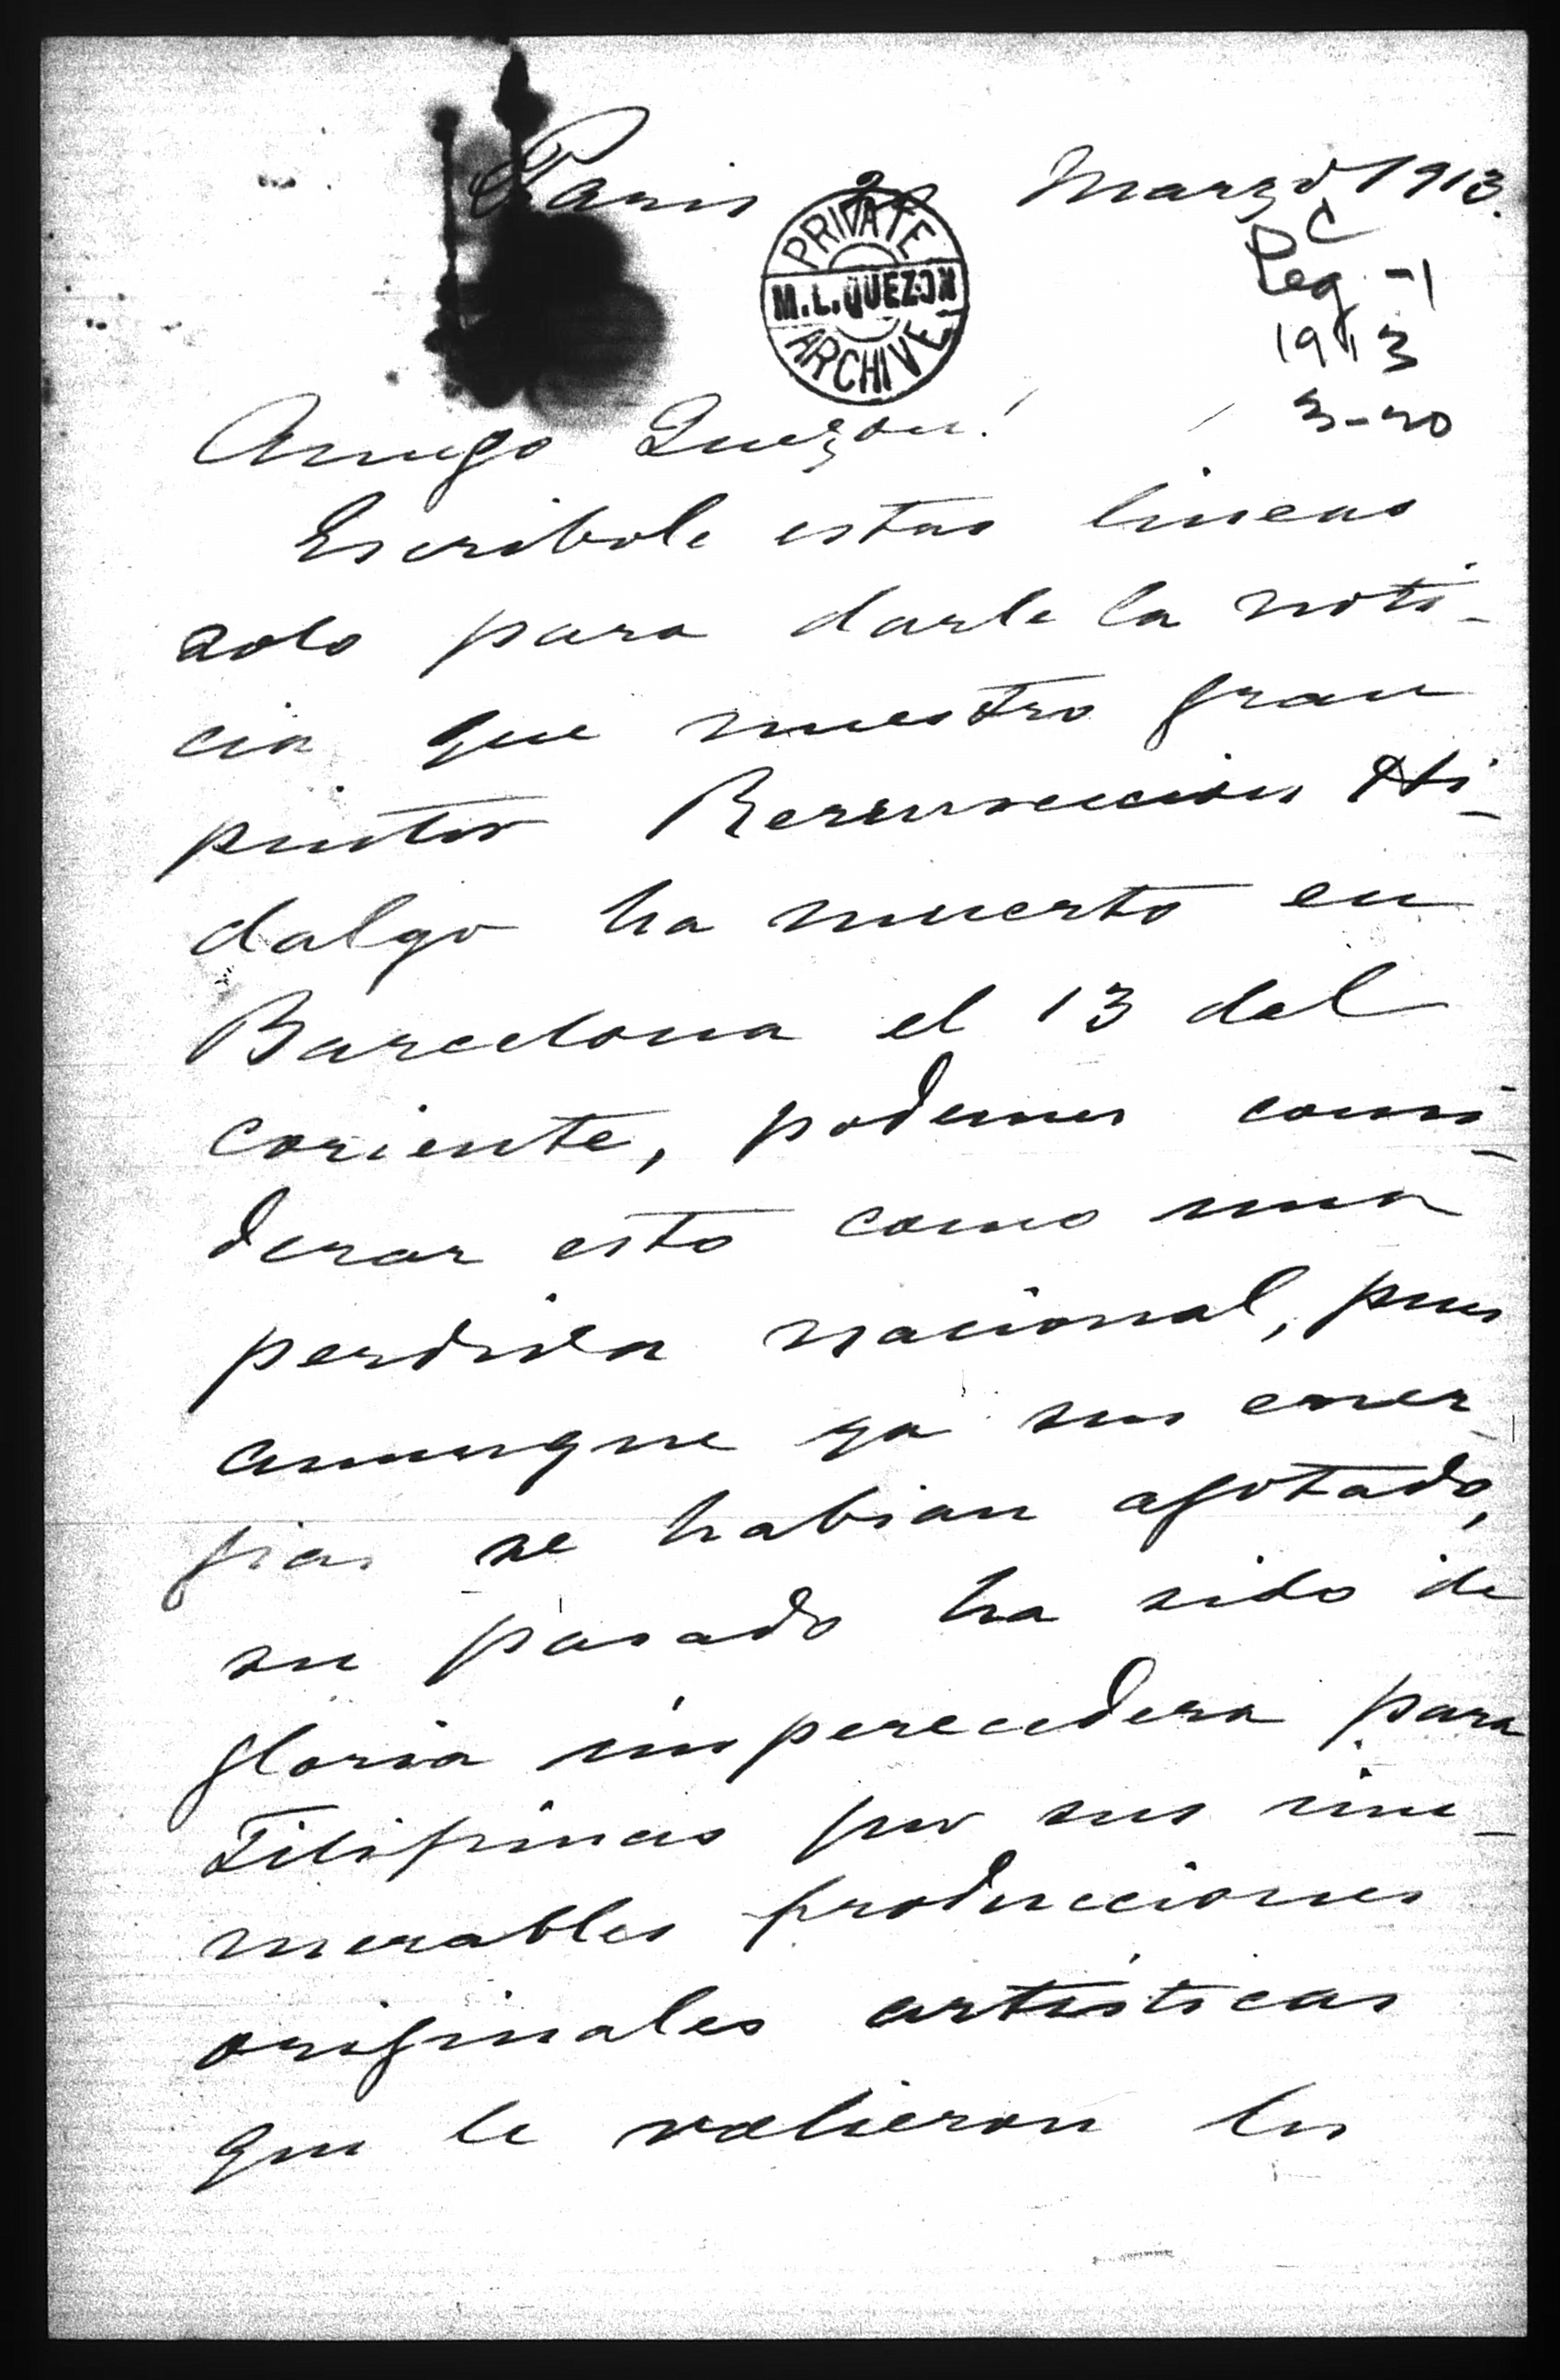 Paris 20 Marzo 1913.
PRIVATE
M. L. QUEZON
ARCHIVE
C
Leg. -1
1913
3-20
Amigo Quezon:
Escribole estas lineas
solo para darle la noti-
cia que nuestro gran
pintor Resurreccion Hi-
dalgo ha muerto en
Barcelona el 13 del
coriente, podemos consi-
derar esto como una
perdida nacional, pues
aunque ya sus ener-
gias se habian agotado,
su pasado ha sido de
gloria imperecedera para
Filipinas por sus inu-
merables producciones
originales artísticas
que le valieron los